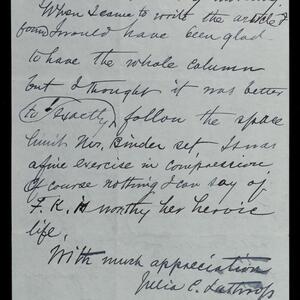 When I came to write the article I
found I would have been glad
to have the whole column
but I thought it was better
to exactly follow the space
limit Mrs. Binder set. It was
a fine exercise in compression
Of course nothing I can say of
F. K. is worthy her heroic
life.
With much appreciation
Julia C. Lathrop